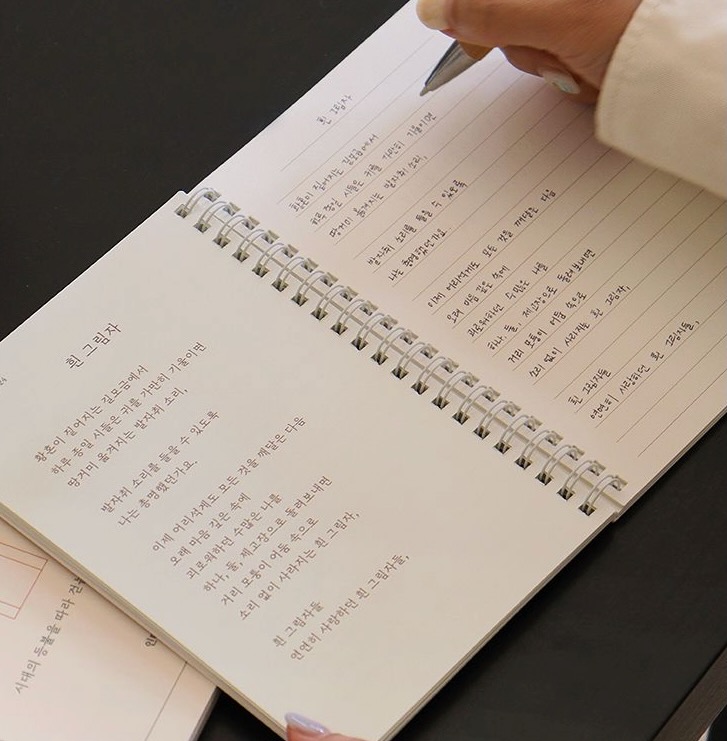 흰 그림자
황혼이 짙어지는 길모금에서
하루 종일 시들은 귀를 가만히 기울이면
땅거미 옮겨지는 발자취 소리,
발자취 소리를 들을 수 있도록
나는 총명했던가요.
이제 어리석게도 모든 것을 깨달은 다음
오래 마음 깊은 속에
괴로워하던 수많은 나를
하나, 둘, 제고장으로 돌려보내면
거리 모퉁이 어둠 속으로
소리 없이 사라지는 흰 그림자,
흰 그림자들
연연히 사랑하던 흰 그림자들,
흰 그림자
황혼이 짙어지는 길모금에서
하루 종일 시들은 귀를 가만히 기울이면
땅거미 옮겨지는 발자취 소리,
발자취 소리를 들을 수 있도록
나는 총명했던가요.
이제 어리석게도 모든 것을 깨달은 다음
오래 마음 깊은 속에
괴로워하던 수많은 나를
하나, 둘, 제고장으로 돌려보내면
거리 모퉁이 어둠 속으로
소리 없이 사라지는 흰 그림자,
흰 그림자들
연연히 사랑하던 흰 그림자들,
시대의 등불을 따라